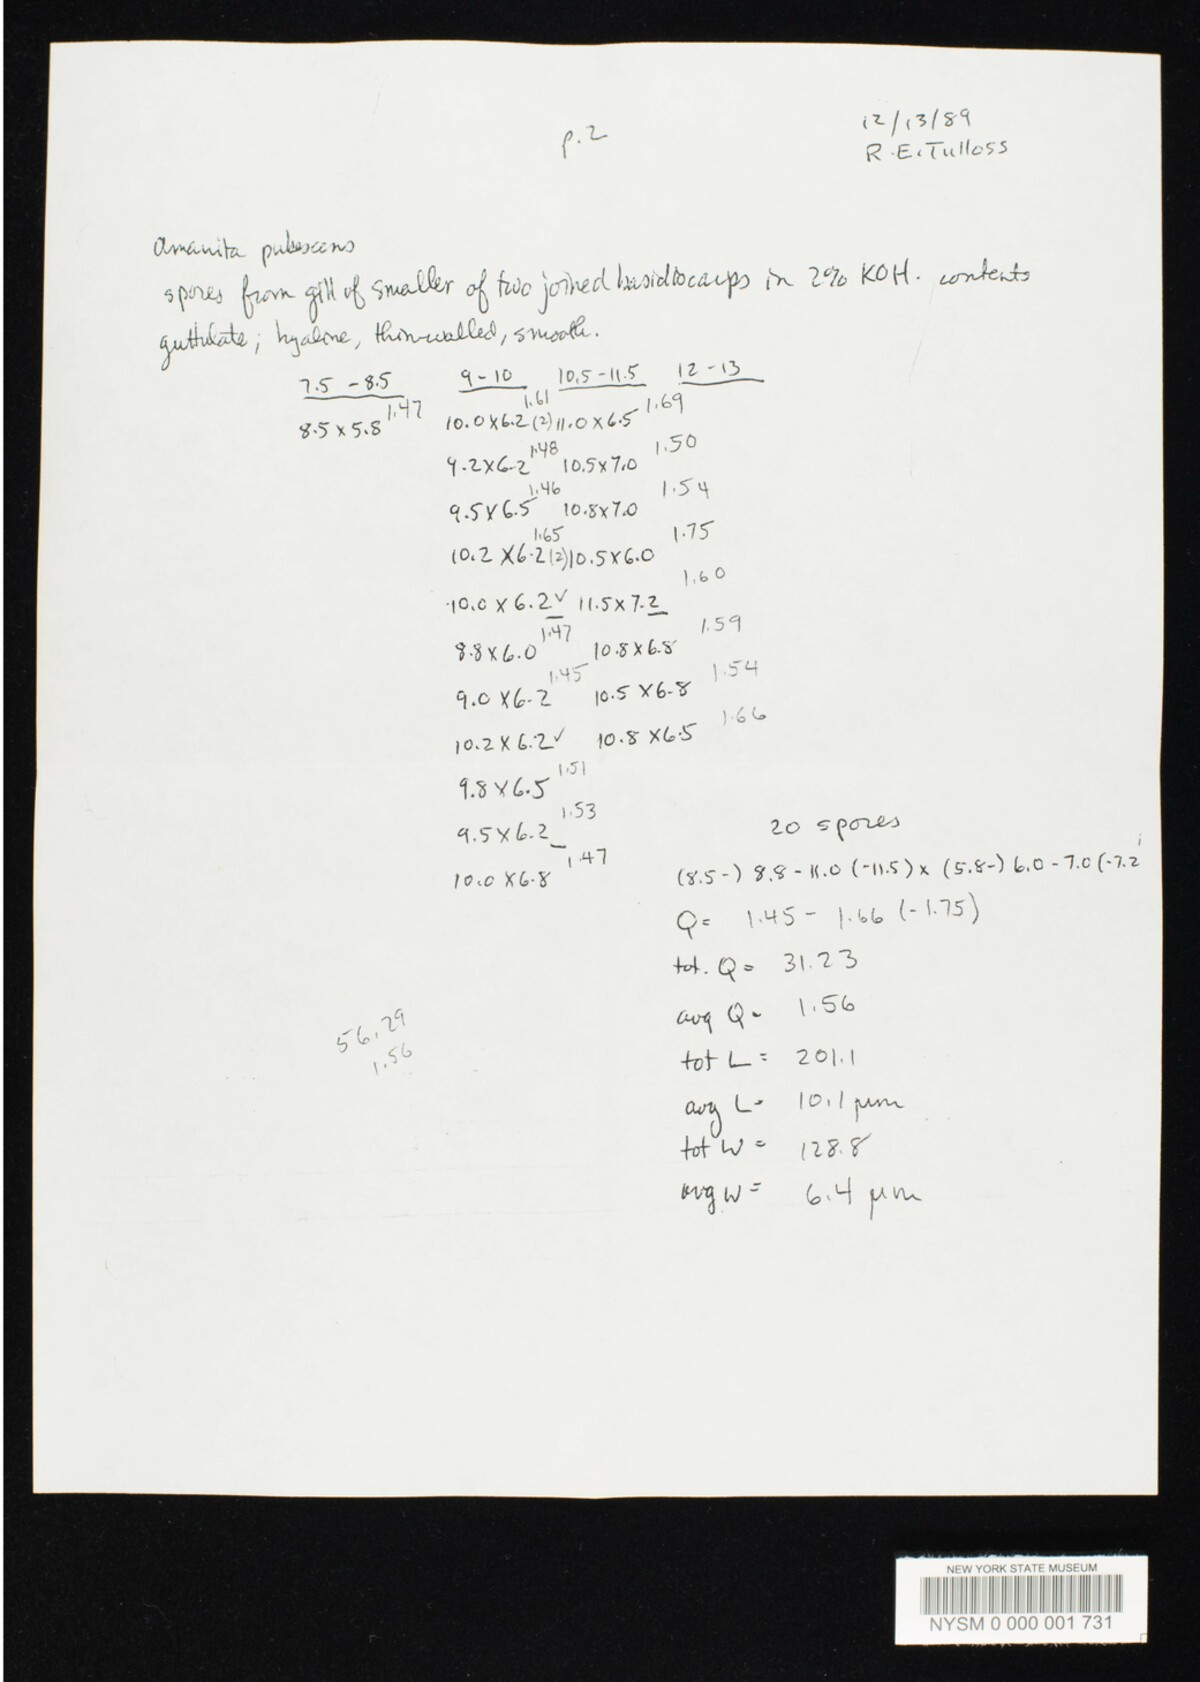 p.2
12/13/89
R.E. Tulloss
Amanita pubescens
spores from gill of smaller of two joined basidiocarps in 2% KOH. contents
guttulate; hyaline, thin-walled, smooth.
7.5 - 8.5 9 - 10 10.5 - 11.5 12 - 13
8.5 x 5.8 1.47 10.0 x 6.2 (2) 1.61 11.0 x 6.5 1.69
9.2 x 6.2 1.48 10.5 x 7.0 1.50
9.5 x 6.5 1.46 10.8 x 7.0 1.54
10.2 x 6.2 (2) 1.65 10.5 x 6.0 1.75
10.0 x 6.2 ✓ 11.5 x 7.2 1.60
8.8 x 6.0 1.47 10.8 x 6.8 1.59
9.0 x 6.2 1.45 10.5 x 6.8 1.54
10.2 x 6.2 ✓ 10.8 x 6.5 1.66
9.8 x 6.5 1.51
9.5 x 6.2 1.53
10.0 x 6.8 1.47
20 spores
(8.5-) 8.8 - 11.0 (-11.5) x (5.8-) 6.0 - 7.0 (-7.2
Q = 1.45 - 1.66 (-1.75)
tot. Q = 31.23
avg Q = 1.56
tot L = 201.1
avg L = 10.1 µm
tot W = 128.8
avg W = 6.4 µm
56.29
1.56
NEW YORK STATE MUSEUM
NYSM 0 000 001 731